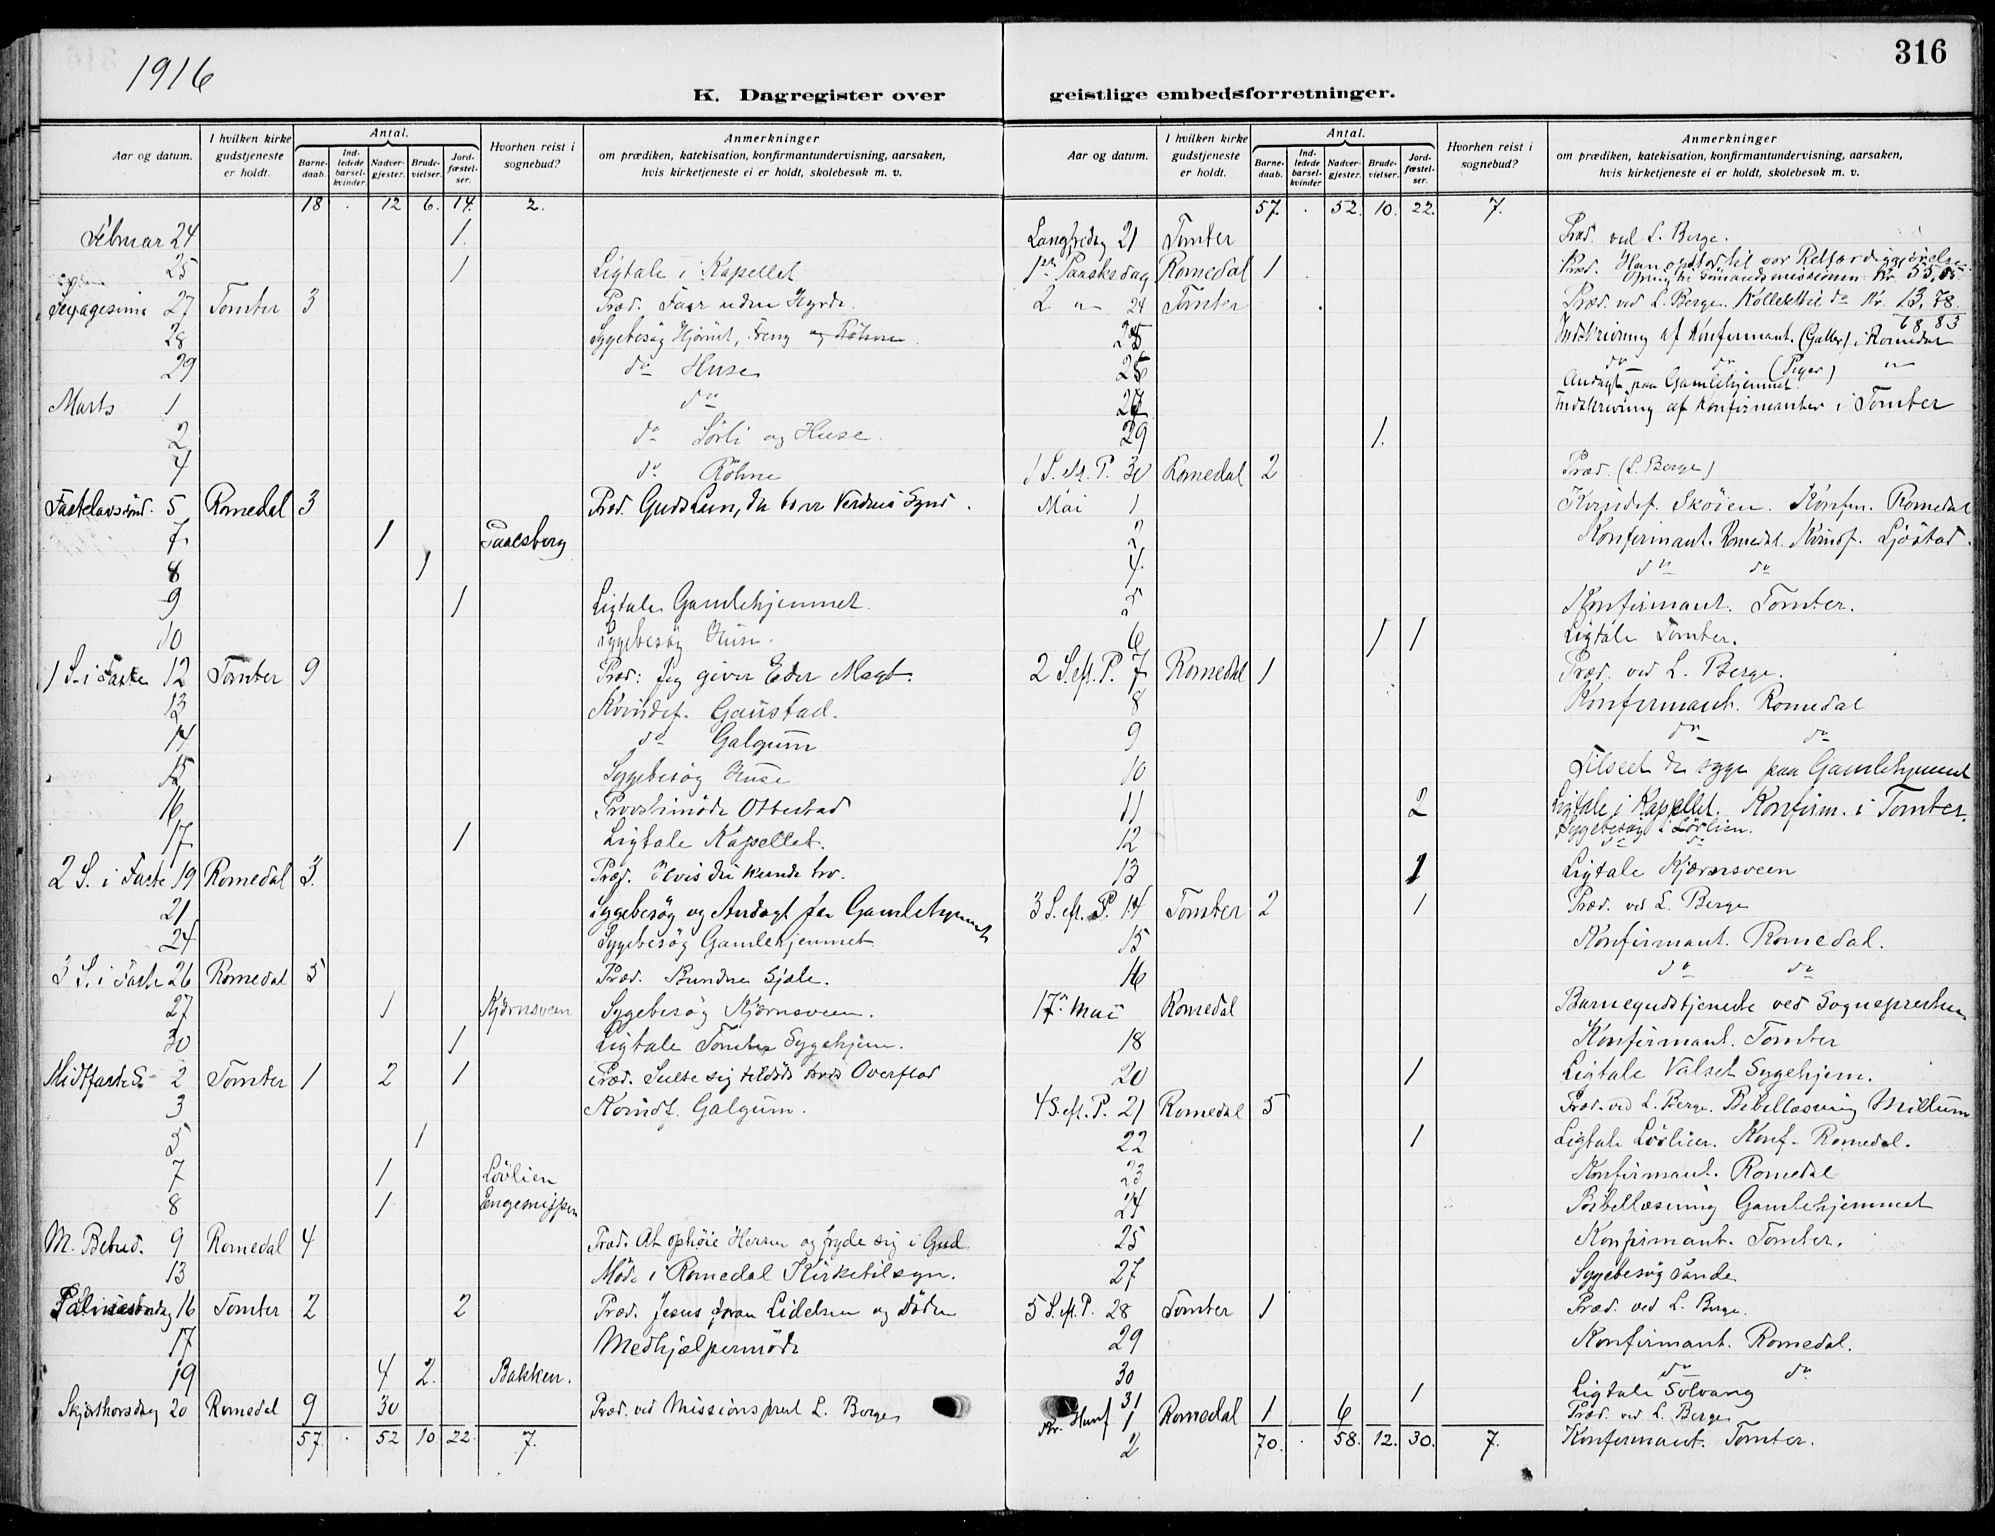 1916
316
K. Dagregister over geistlige embedsforretninger.
Aar og datum. I hvilken kirke gudstjeneste er holdt. Antal. Barnedaab. Indledede barselkvinder Nadvergjester. Brudevielser. Jordfæstelser. Hvorhen reist i sognebud? Anmerkninger om prædiken, katekisation, konfirmantundervisning, aarsaken, hvis kirketjeneste ei er holdt, skolebesøk m. v.
18 . 12 6. 14. 2.
Februar 24 1.
25 1 Ligtale i Kapellet
Sexagesima 27 Tomter 3 Præd. Faar uden Hyrde.
28 Sygebesøg Hjørnet, Freng og Røhne
29 do Huse
Marts 1 do
2 do Sørli og Huse.
4 do Røhne
Fastelavssønd. 5 Romedal 3 Præd. Guds Lam, da bærer Verdens Synd.
7 1 Paalsberg
8 1
9 1 Ligtale Gamlehjemmet.
10 Sygebesøg Huse.
1 S. i Faste 12 Tomter 9 Præd: Jeg giver Eder Magt.
13 Kvindef. Gaustad.
14 do Galgum
15 Sygebesøg Huse
16 Provstimøde Ottestad
17 1 Ligtale Kapellet.
2 S. i Faste 19 Romedal 3. Præd. Hvis du kunde tro.
21 Sygebesøg og Andagt paa Gamlehjemmet
24 Sygebesøg Gamlehjemmet
3 S. i Faste 26 Romedal 5 Præd. Bundne Sjæle.
27 1 Kjærnsveen Sygebesøg Kjærnsveen.
30 1 Ligtale Tomter Sygehjem.
Midtfaste S. 2 Tomter 1 2 1 Præd. Sulte sig tildøds hos Overflod
3 Kvindf. Galgum.
5 1
7 1 Løvlien
8 1
M. Bebud. 9 Romedal 4 Præd. At ophøie Herren og fryde sig i Gud
13 Møde i Romedal Kirketilsyn.
Palmesøndag 16 Tomter 2 2 Præd. Jesus foran Lidelsen og Døden
17 Medhjælpermøde
19 4 2. Bakken.
Skjærthorsdag 20 Romedal 9 30 Præd. ved Missionsprest L. Berge
57. . 52 10 22. 7.
Aar og datum. I hvilken kirke gudstjeneste er holdt. Antal. Barnedaab. Indledede barselkvinder Nadvergjester. Brudevielser. Jordfæstelser. Hvorhen reist i sognebud? Anmerkninger om prædiken, katekisation, konfirmantundervisning, aarsaken, hvis kirketjeneste ei er holdt, skolebesøk m. v.
57. . 52. 10. 22. 7.
Langfredag 21 Tomter Præd. ved L. Berge.
1ste Paaskedag Romedal 1 Præd. Han opstod til vor Retfærdiggjørelse.
Ofring til Sømandsmissionen Kr. 55,05
2 " 24 Tomter Præd. ved L. Berge. Kollekt til do Kr. 13,78.
68,83
25 Indskrivning af Konfirmant. (Gutter) i Romedal
26 do do (Piger) "
Andagt paa Gamlehjemmet.
27 Indskrivning af Konfirmanter i Tomter
29 1.
1 S. eft. P. 30 Romedal 2 Præd. (L. Berge)
Mai 1 Kvindef. Skøien. Konfirm. Romedal
2 Konfirmant. Romedal. Kvindf. Ljøstad.
4. do do
5 Konfirmant. Tomter.
6 1 1 Ligtale Tomter.
2 S. eft. P. 7 Romedal 1 Præd. ved L. Berge.
8 Konfirmant. Romedal
9 do do
10 Tilseet de syge paa Gamlehjemmet
11 2 Ligtale i Kapellet. Konfirm. i Tomter.
Sygebesøg i Løvlien.
12 do do
13 1 Ligtale Kjærnsveen
3 S. eft. P. 14 Tomter 2 1 Præd. ved L. Berge
15 Konfirmant. Romedal.
16 do do
17de Mai Romedal Barnegudstjeneste ved Sognepresten
18 Konfirmant. Tomter
20 1 Ligtale Valset Sygehjem.
4 S. eft. P. 21 Romedal 5 Præd. ved L. Berge. Bibellæsning Mellum
22 1 Ligtale Løvlien. Konf. Romedal.
23 Konfirmant. Romedal
24 Bibellæsning Gamlehjemmet
25 Konfirmant. Tomter.
27 Sygebesøg Sande
5 S. eft. P. 28 Tomter 1 Præd. ved L. Berge.
29 Konfirmant. Romedal.
30 do do
31 1 Ligtale Solvang
Kr. Himf 1 Romedal 1 6 Præd. ved L. Berge
2 Konfirmant. Tomter.
70. . 58. 12. 30. 7.